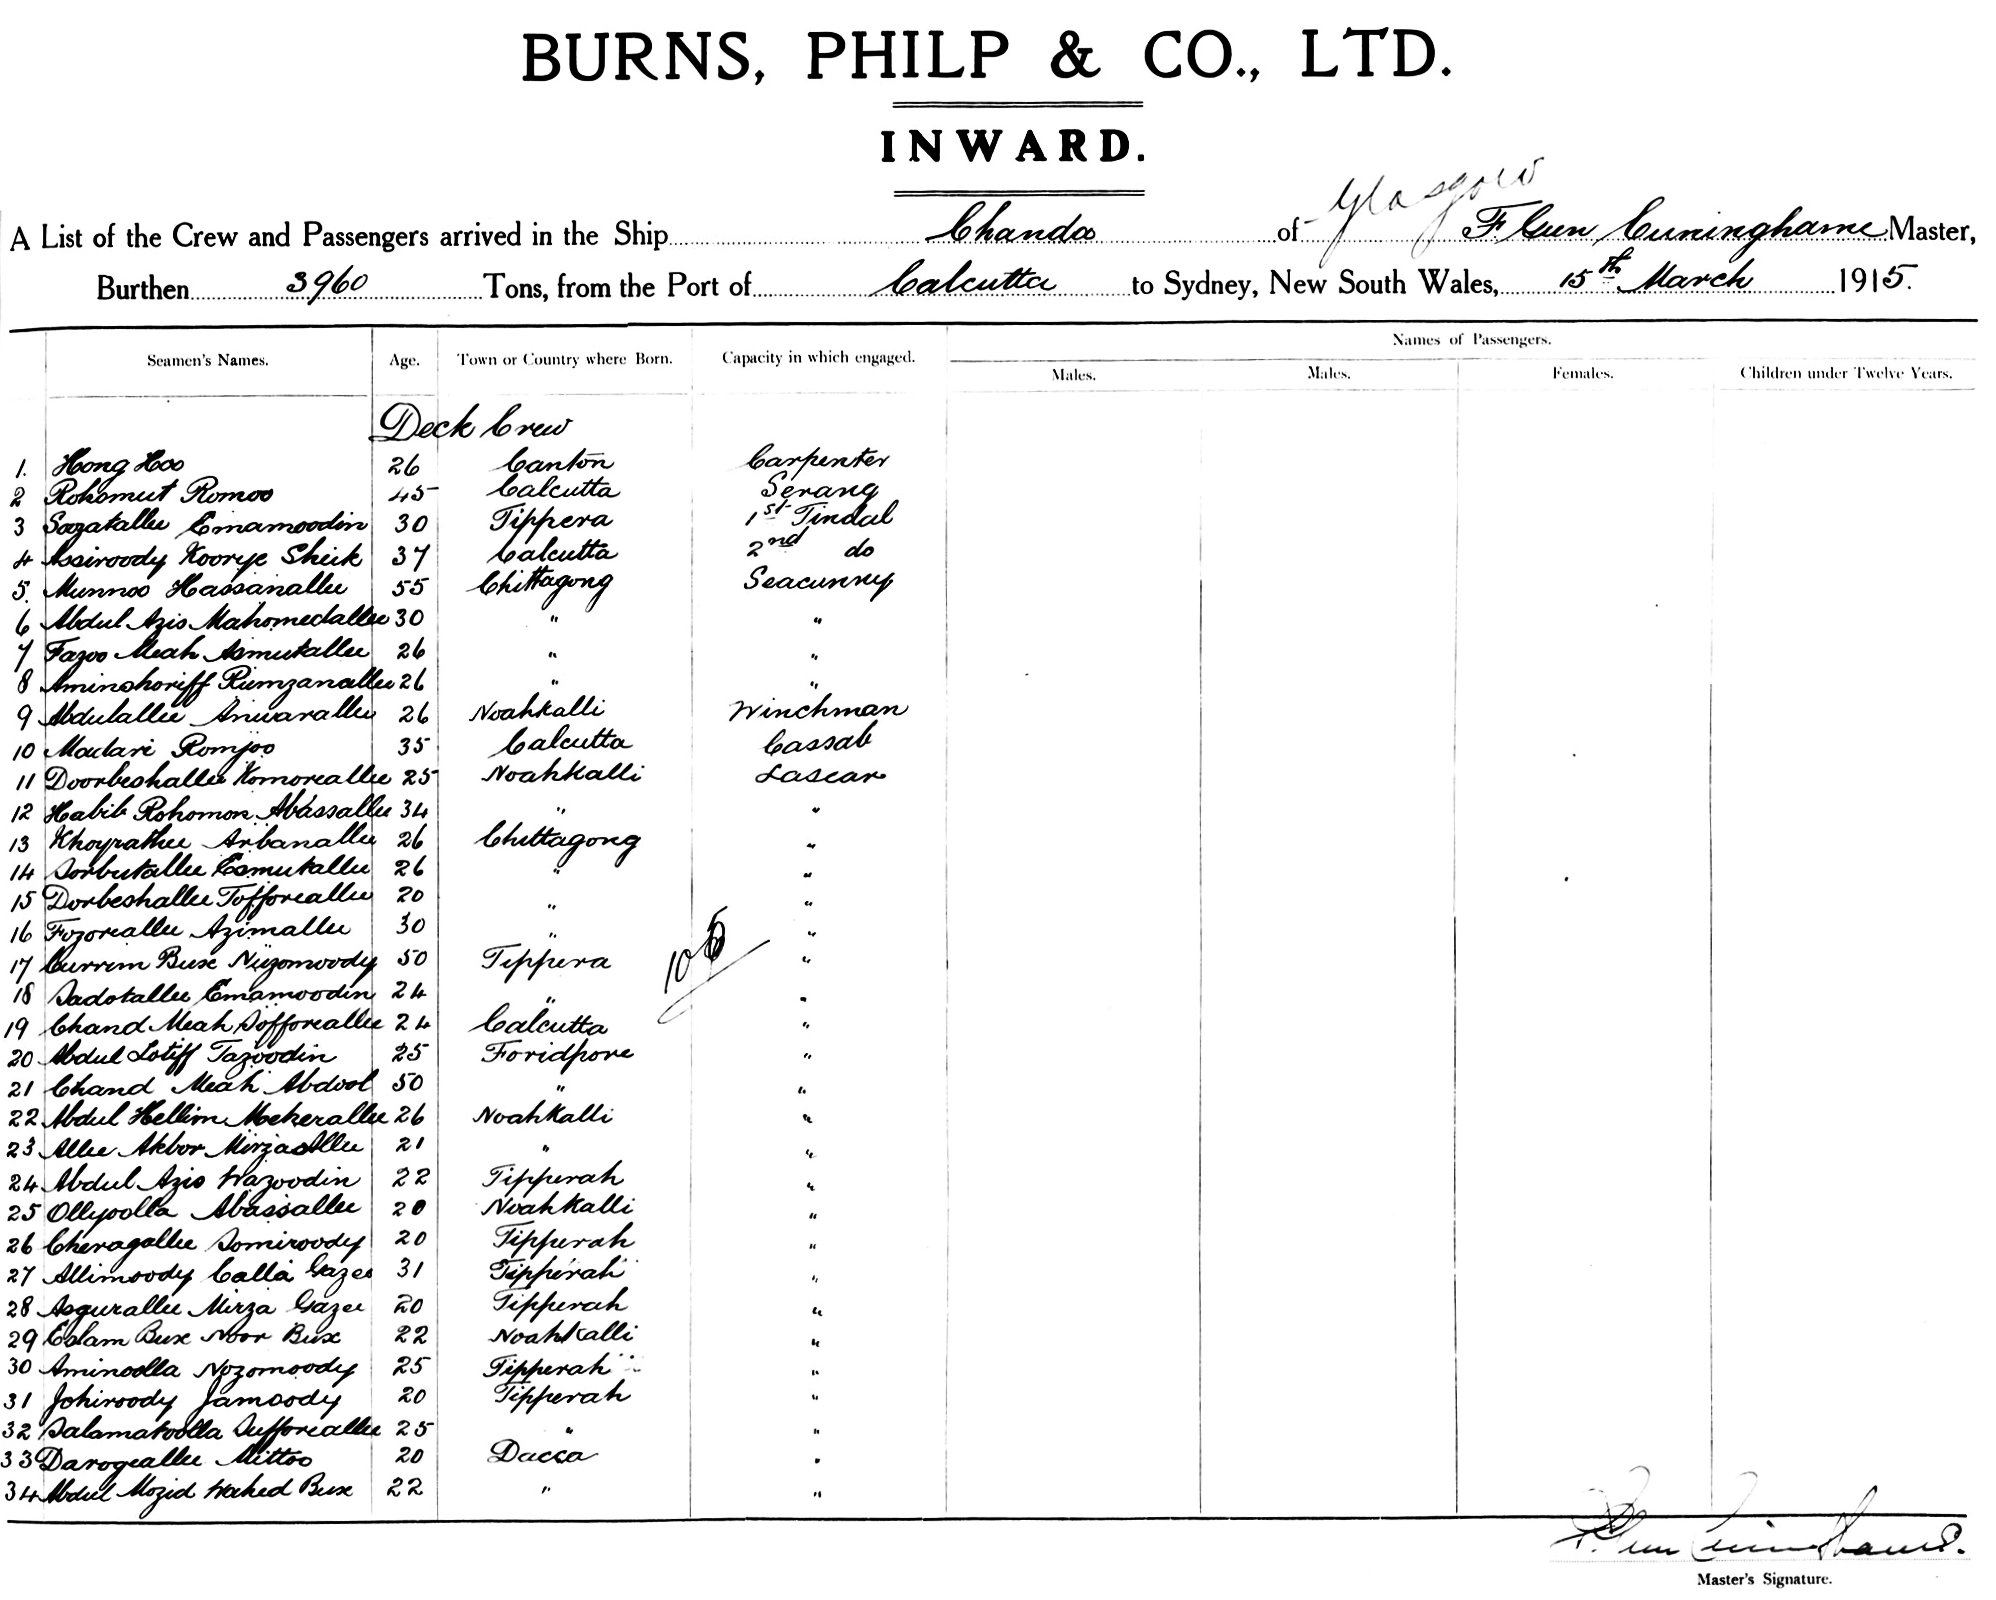 BURNS, PHILP & CO., LTD.
INWARD.
A List of the Crew and Passengers arrived in the Ship Chanda of Glasgow F Cunninghame Master,
Burthen 3960 Tons, from the Port of Calcutta to Sydney, New South Wales, 15th March 1915.
Names of Passengers.
Seamen's Names. Age. Town or Country where Born. Capacity in which engaged. Males. Males. Females. Children under Twelve Years.
Deck Crew
1. Hong Hoo 26 Canton Carpenter
2 Rohomut Romoo 45 Calcutta Serang
3 Sogatallee Emamoodin 30 Tippera 1st Tindal
4 Assiroody Koorye Sheik 37 Calcutta 2nd do
5. Munnoo Hassanallee 55 Chittagong Seacunny
6 Abdul Azis Mahomedallee 30 " "
7 Fazoo Meah Asmutallee 26 " "
8 Aminshoriff Rumzanallee 26 " "
9 Abdulallee Anwarallee 26 Noahkalli Winchman
10 Madari Romjoo 35 Calcutta Cassab
11 Doorbeshallee Komoreallee 25 Noahkalli Lascar
12 Habib Rohomon Abassallee 34 " "
13 Khoyrathee Arbanallee 26 Chittagong "
14 Sorbutallee Esmutallee 26 " "
15 Dorbeshallee Tofforeallee 20 " "
16 Fozoreallee Azimallee 30 " "
17 Currim Bux Nuzomoody 50 Tippera "
18 Sadotallee Emamoodin 24 " "
19 Chand Meah Sofforeallee 24 Calcutta "
20 Abdul Lotiff Tazoodin 25 Foridpore "
21 Chand Meah Abdool 50 " "
22 Abdul Hellim Mokerallee 26 Noahkalli "
23 Allee Akbor Mirza Allee 21 " "
24 Abdul Azis Wazoodin 22 Tipperah "
25 Ollyoolla Abassallee 20 Noahkalli "
26 Cheragallee Somiroody 20 Tipperah "
27 Allimoody Calla Gazee 31 Tipperah "
28 Asgurallee Mirza Gazee 20 Tipperah "
29 Eslam Bux Noor Bux 22 Noahkalli "
30 Aminoolla Nozomoody 25 Tipperah "
31 Johiroody Jamoody 20 Tipperah "
32 Salamatoolla Sufforeallee 25 " "
33 Darogeallee Mittoo 20 Dacca "
34 Abdul Mozid Wahed Bux 22 " "
Master's Signature.